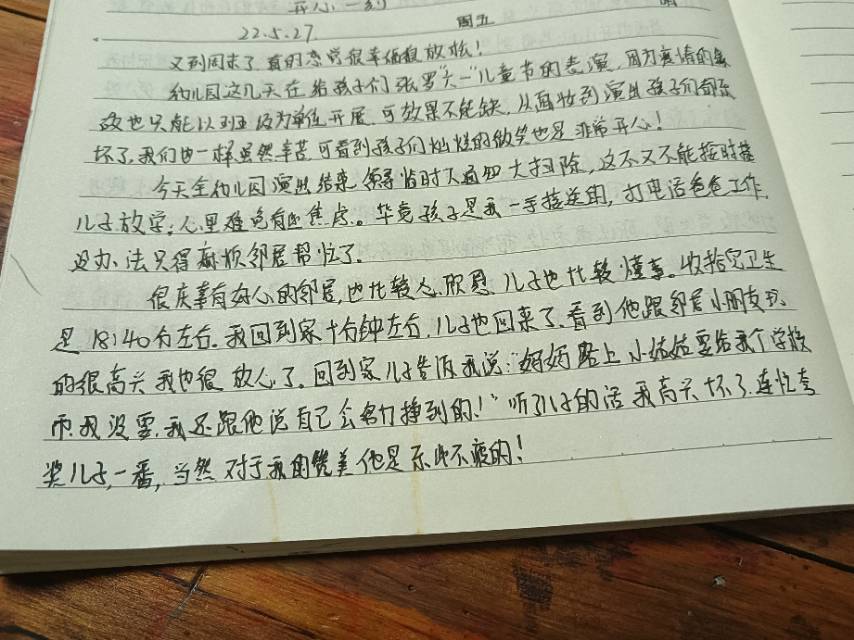 开心一刻
22.5.27 周五 晴
又到周末了,真的感觉很幸福很放松!
幼儿园这几天在给孩子们张罗"六一"儿童节的表演,因为疫情的缘
故也只能以班级为单位开展,可效果不能缺,从画妆到演出孩子们都乐
坏了,我们也一样虽然辛苦,可看到孩子们灿烂的微笑也是非常开心!
今天全幼儿园演出结束,领导临时又通知大扫除,这不又不能按时接
儿子放学,心里难免有些焦虑。毕竟孩子是我一手接送的,打电话爸爸工作,
没办法只得麻烦邻居帮忙了。
很庆幸有好心的邻居,也比较心欣慰,儿子也比较懂事。收拾完卫生
是18:40分左右,我回到家十分钟左右,儿子也回来了,看到他跟邻居小朋友玩
的很高兴我也很放心了。回到家儿子告诉我说:"妈妈路上小姑姑要给我个学校
币我没要,我还跟他说自己会努力挣到的!"听了儿子的话我高兴坏了,连忙夸
奖儿子一番,当然对于我的赞美他是乐此不疲的!